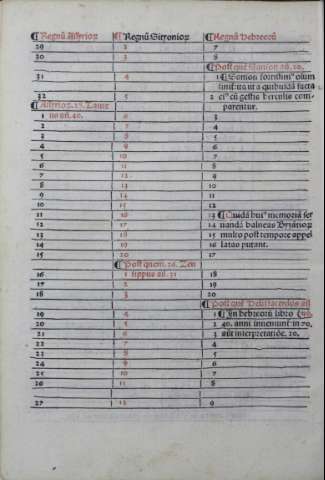 ¶Regnū Assyrioꝝ ¶Regnū Sitionioꝝ ¶Regnū Hebreoꝝ
29 2 7
30 3 8
¶Post quē Samson añ. 20.
31 4 1 ¶Samson fortissim⁹ oīum
fuit ita ut a quibusdā facta
32 5 2 ei⁹ cū gestis herculis com-
parentur.
¶Assyrioꝝ. 27.
1 añ. 40. 6 3
2 7 4
3 8 5
4 9 6
5 10 7
6 11 8
7 12 9
8 13 10
9 14 11
10 15 12
11 16 13 ¶Quidā hui⁹ memoriā
12 17 14
13 18 15 multo post tempore appel
14 19 16 latas putant.
15 20 17
¶Post quem. 24. Zeu
16 1 xippus añ. 31 18
17 2 19
18 3 20
¶Post quē Heli sacerdos añ
19 4 1 ¶In hebreorū libro
20 5 2 40. anni inueniunt in
21 6 3 aūt interpretatiōe. 20.
22 7 4
23 8 5
24 9 6
25 10 7
26 11 8
27 12 9